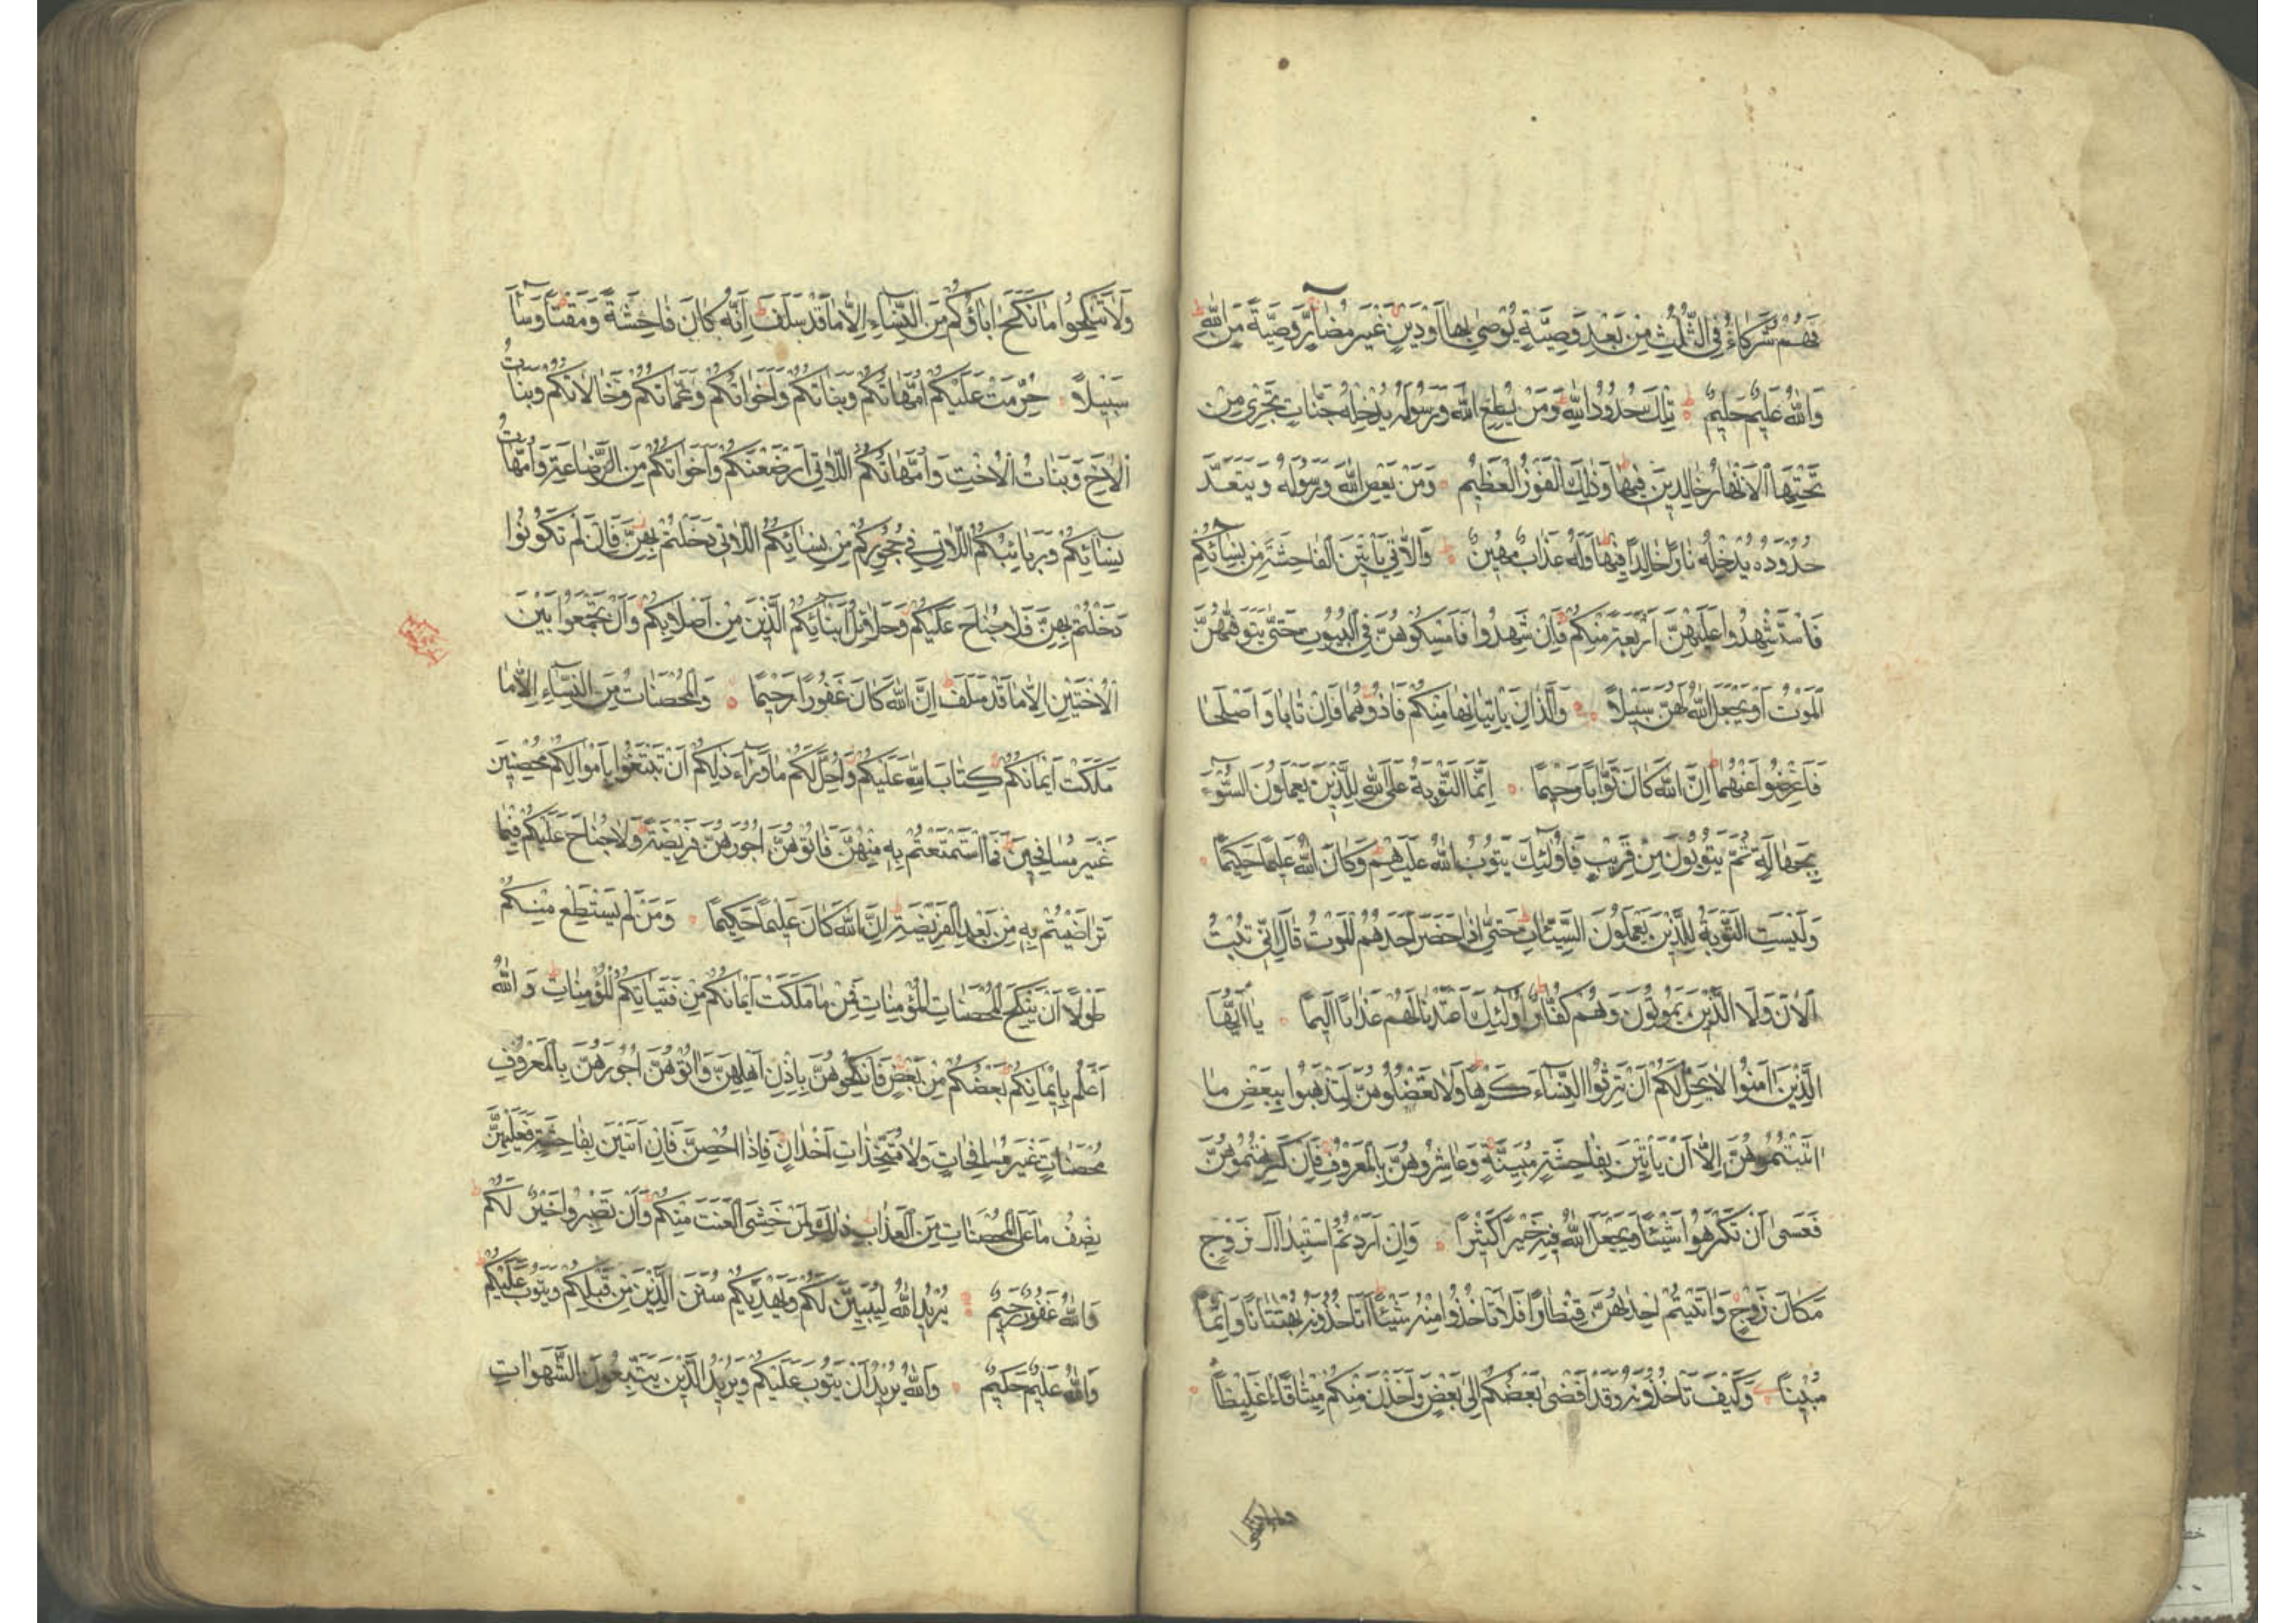 فَهُمْ شُرَكَاءُ فِي الثُّلُثِ مِنْ بَعْدِ وَصِيَّةٍ يُوصَى بِهَا أَوْ دَيْنٍ غَيْرَ مُضَارٍّ وَصِيَّةً مِنَ اللّٰهِ
وَاللّٰهُ عَلِيمٌ حَلِيمٌ تِلْكَ حُدُودُ اللّٰهِ وَمَنْ يُطِعِ اللّٰهَ وَرَسُولَهُ يُدْخِلْهُ جَنَّاتٍ تَجْرِي مِنْ
تَحْتِهَا الْأَنْهَارُ خَالِدِينَ فِيهَا وَذٰلِكَ الْفَوْزُ الْعَظِيمُ وَمَنْ يَعْصِ اللّٰهَ وَرَسُولَهُ وَيَتَعَدَّ
حُدُودَهُ يُدْخِلْهُ نَارًا خَالِدًا فِيهَا وَلَهُ عَذَابٌ مُهِينٌ وَالّٰاتِي يَأْتِينَ الْفَاحِشَةَ مِنْ نِسَائِكُمْ
فَاسْتَشْهِدُوا عَلَيْهِنَّ أَرْبَعَةً مِنْكُمْ فَإِنْ شَهِدُوا فَأَمْسِكُوهُنَّ فِي الْبُيُوتِ حَتَّى يَتَوَفّٰهُنَّ
الْمَوْتُ أَوْ يَجْعَلَ اللّٰهُ لَهُنَّ سَبِيلًا وَالَّذَانِ يَأْتِيَانِهَا مِنْكُمْ فَآذُوهُمَا فَإِنْ تَابَا وَأَصْلَحَا
فَأَعْرِضُوا عَنْهُمَا إِنَّ اللّٰهَ كَانَ تَوَّابًا رَحِيمًا إِنَّمَا التَّوْبَةُ عَلَى اللّٰهِ لِلَّذِينَ يَعْمَلُونَ السُّوءَ
بِجَهَالَةٍ ثُمَّ يَتُوبُونَ مِنْ قَرِيبٍ فَأُولٰئِكَ يَتُوبُ اللّٰهُ عَلَيْهِمْ وَكَانَ اللّٰهُ عَلِيمًا حَكِيمًا
وَلَيْسَتِ التَّوْبَةُ لِلَّذِينَ يَعْمَلُونَ السَّيِّئَاتِ حَتَّى إِذَا حَضَرَ أَحَدَهُمُ الْمَوْتُ قَالَ إِنِّي تُبْتُ
الْآنَ وَلَا الَّذِينَ يَمُوتُونَ وَهُمْ كُفَّارٌ أُولٰئِكَ أَعْتَدْنَا لَهُمْ عَذَابًا أَلِيمًا يَا أَيُّهَا
الَّذِينَ آمَنُوا لَا يَحِلُّ لَكُمْ أَنْ تَرِثُوا النِّسَاءَ كَرْهًا وَلَا تَعْضُلُوهُنَّ لِتَذْهَبُوا بِبَعْضِ مَا
اٰتَيْتُمُوهُنَّ إِلَّا أَنْ يَأْتِينَ بِفَاحِشَةٍ مُبَيِّنَةٍ وَعَاشِرُوهُنَّ بِالْمَعْرُوفِ فَإِنْ كَرِهْتُمُوهُنَّ
فَعَسَى أَنْ تَكْرَهُوا شَيْئًا وَيَجْعَلَ اللّٰهُ فِيهِ خَيْرًا كَثِيرًا وَإِنْ أَرَدْتُمُ اسْتِبْدَالَ زَوْجٍ
مَكَانَ زَوْجٍ وَاٰتَيْتُمْ إِحْدٰهُنَّ قِنْطَارًا فَلَا تَأْخُذُوا مِنْهُ شَيْئًا أَتَأْخُذُونَهُ بُهْتَانًا وَإِثْمًا
مُبِينًا وَكَيْفَ تَأْخُذُونَهُ وَقَدْ أَفْضَى بَعْضُكُمْ إِلَى بَعْضٍ وَأَخَذْنَ مِنْكُمْ مِيثَاقًا غَلِيظًا
وَلَا تَنْكِحُوا مَا نَكَحَ اٰبَاؤُكُمْ مِنَ النِّسَاءِ إِلَّا مَا قَدْ سَلَفَ إِنَّهُ كَانَ فَاحِشَةً وَمَقْتًا وَسَاءَ
سَبِيلًا حُرِّمَتْ عَلَيْكُمْ أُمَّهَاتُكُمْ وَبَنَاتُكُمْ وَأَخَوَاتُكُمْ وَعَمَّاتُكُمْ وَخَالَاتُكُمْ وَبَنَاتُ
الْأَخِ وَبَنَاتُ الْأُخْتِ وَأُمَّهَاتُكُمُ اللَّاتِي أَرْضَعْنَكُمْ وَأَخَوَاتُكُمْ مِنَ الرَّضَاعَةِ وَأُمَّهَاتُ
نِسَائِكُمْ وَرَبَائِبُكُمُ اللَّاتِي فِي حُجُورِكُمْ مِنْ نِسَائِكُمُ اللَّاتِي دَخَلْتُمْ بِهِنَّ فَإِنْ لَمْ تَكُونُوا
دَخَلْتُمْ بِهِنَّ فَلَا جُنَاحَ عَلَيْكُمْ وَحَلَائِلُ أَبْنَائِكُمُ الَّذِينَ مِنْ أَصْلَابِكُمْ وَأَنْ تَجْمَعُوا بَيْنَ
الْأُخْتَيْنِ إِلَّا مَا قَدْ سَلَفَ إِنَّ اللّٰهَ كَانَ غَفُورًا رَحِيمًا وَالْمُحْصَنَاتُ مِنَ النِّسَاءِ إِلَّا مَا
مَلَكَتْ أَيْمَانُكُمْ كِتَابَ اللّٰهِ عَلَيْكُمْ وَأُحِلَّ لَكُمْ مَا وَرَاءَ ذٰلِكُمْ أَنْ تَبْتَغُوا بِأَمْوَالِكُمْ مُحْصِنِينَ
غَيْرَ مُسَافِحِينَ فَمَا اسْتَمْتَعْتُمْ بِهِ مِنْهُنَّ فَاٰتُوهُنَّ أُجُورَهُنَّ فَرِيضَةً وَلَا جُنَاحَ عَلَيْكُمْ فِيمَا
تَرَاضَيْتُمْ بِهِ مِنْ بَعْدِ الْفَرِيضَةِ إِنَّ اللّٰهَ كَانَ عَلِيمًا حَكِيمًا وَمَنْ لَمْ يَسْتَطِعْ مِنْكُمْ
طَوْلًا أَنْ يَنْكِحَ الْمُحْصَنَاتِ الْمُؤْمِنَاتِ فَمِنْ مَا مَلَكَتْ أَيْمَانُكُمْ مِنْ فَتَيَاتِكُمُ الْمُؤْمِنَاتِ وَاللّٰهُ
أَعْلَمُ بِإِيمَانِكُمْ بَعْضُكُمْ مِنْ بَعْضٍ فَانْكِحُوهُنَّ بِإِذْنِ أَهْلِهِنَّ وَاٰتُوهُنَّ أُجُورَهُنَّ بِالْمَعْرُوفِ
مُحْصَنَاتٍ غَيْرَ مُسَافِحَاتٍ وَلَا مُتَّخِذَاتِ أَخْدَانٍ فَإِذَا أُحْصِنَّ فَإِنْ أَتَيْنَ بِفَاحِشَةٍ فَعَلَيْهِنَّ
نِصْفُ مَا عَلَى الْمُحْصَنَاتِ مِنَ الْعَذَابِ ذٰلِكَ لِمَنْ خَشِيَ الْعَنَتَ مِنْكُمْ وَأَنْ تَصْبِرُوا خَيْرٌ لَكُمْ
وَاللّٰهُ غَفُورٌ رَحِيمٌ يُرِيدُ اللّٰهُ لِيُبَيِّنَ لَكُمْ وَيَهْدِيَكُمْ سُنَنَ الَّذِينَ مِنْ قَبْلِكُمْ وَيَتُوبَ عَلَيْكُمْ
وَاللّٰهُ عَلِيمٌ حَكِيمٌ وَاللّٰهُ يُرِيدُ أَنْ يَتُوبَ عَلَيْكُمْ وَيُرِيدُ الَّذِينَ يَتَّبِعُونَ الشَّهَوَاتِ